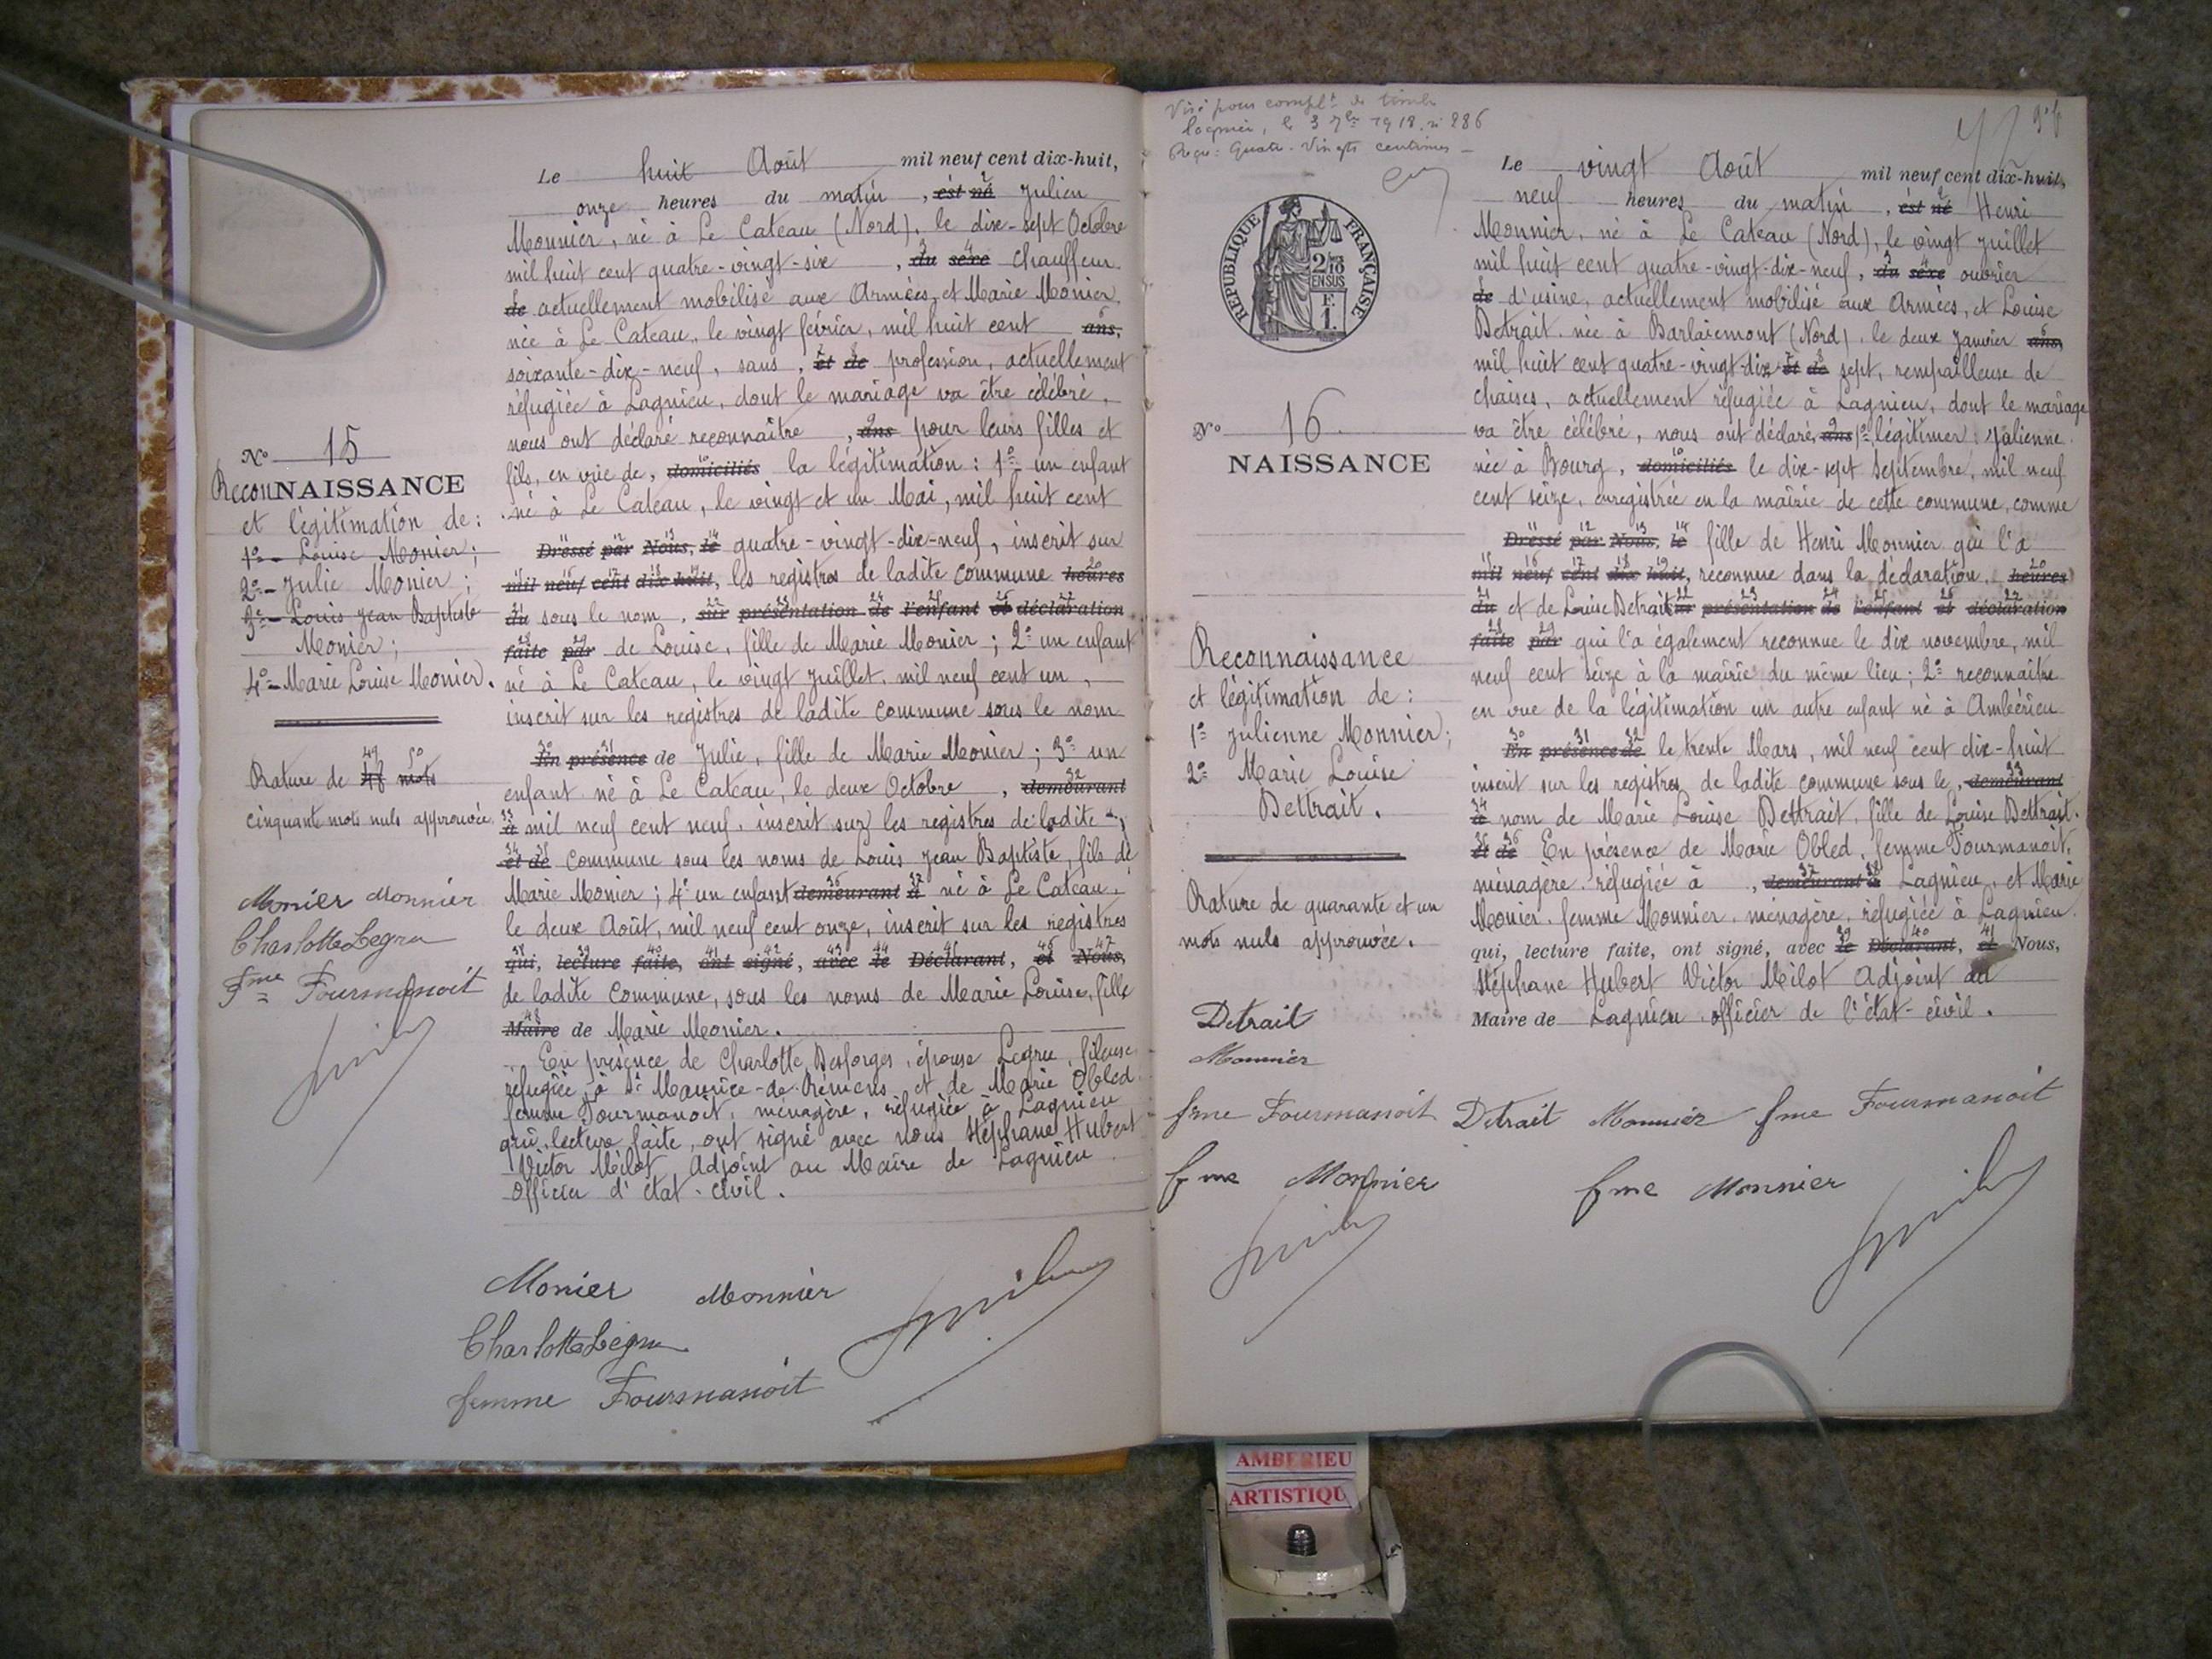 Le huit Août mil neuf cent dix-huit,
onze heures du matin, est né Julien
Monnier, né à Le Cateau (Nord), le dix-sept Octobre
mil huit cent quatre-vingt-six, du sexe chauffeur
de actuellement mobilisé aux Armées, et Marie Monier,
née à Le Cateau, le vingt février, mil huit cent ans,
soixante-dix-neuf, sans, et de profession, actuellement
réfugiée à Lagnieu, dont le mariage va être célébré,
nous ont déclaré reconnaître, ans pour leurs filles et
fils, en vue de, domiciliés la légitimation : 1º un enfant
né à Le Cateau, le vingt et un Mai, mil huit cent
Dressé par Nous, le quatre-vingt-dix-neuf, inscrit sur
mil neuf cent dix huit, les registres de ladite commune heures
du sous le nom, sur présentation de l'enfant et déclaration
faite par de Louise, fille de Marie Monier ; 2º un enfant
né à Le Cateau, le vingt Juillet, mil neuf cent un,
inscrit sur les registres de ladite commune sous le nom
En présence de Julie, fille de Marie Monier ; 3º un
enfant né à Le Cateau, le deux Octobre, demeurant
à mil neuf cent neuf, inscrit sur les registres de ladite
et de commune sous les noms de Louis Jean Baptiste, fils de
Marie Monier ; 4º un enfant demeurant à né à Le Cateau,
le deux Août, mil neuf cent onze, inscrit sur les registres
qui, lecture faite, ont signé, avec le Déclarant, et Nous,
de ladite commune, sous les noms de Marie Louise, fille
Maire de Marie Monier.
En présence de Charlotte Desforges, épouse Legru, fileuse
réfugiée à St Maurice-de-Rémens et de Marie Obled
femme Fourmanoit, ménagère, réfugiée à Lagnieu
qui, lecture faite, ont signé avec nous Stéphane Hubert
Victor Milot, Adjoint au Maire de Lagnieu
officier d'état-civil.
Monier Monnier
Charlotte Legru
femme Fourmanoit
Nº 15
ReconNAISSANCE
et légitimation de :
1º - Louise Monier ;
2º - Julie Monier ;
3º - Louis Jean Baptiste
Monier ;
4º - Marie Louise Monier.
Rature de 48 mots
cinquante mots nuls approuvée.
Monier Monnier
Charlotte Legru
Fme Fourmanoit
Visé pour complt de timbre
Lagnieu, le 3 7bre 1918. nº 286
Reçu : Quatre-Vingts centimes
REPUBLIQUE FRANÇAISE
2/10
EN SUS
F.
1.
Nº 16
NAISSANCE
Reconnaissance
et légitimation de :
1º Julienne Monnier ;
2º Marie Louise
Dettrait.
Rature de quarante et un
mots nuls approuvée.
Detrait
Monnier
fme Fourmanoit
fme Monnier
Le vingt Août mil neuf cent dix-huit,
neuf heures du matin, est né Henri
Monnier, né à Le Cateau (Nord), le vingt Juillet
mil huit cent quatre-vingt-dix-neuf, du sexe ouvrier
de d'usine, actuellement mobilisé aux Armées, et Louise
Detrait, née à Barlaiemont (Nord), le deux Janvier ans,
mil huit cent quatre-vingt-dix et de sept, rempailleuse de
chaises, actuellement réfugiée à Lagnieu, dont le mariage
va être célébré, nous ont déclaré, ans 1º légitimer : Julienne
née à Bourg, domiciliés le dix-sept Septembre, mil neuf
cent seize, enregistrée en la mairie de cette commune, comme
Dressé par Nous, le fille de Henri Monnier qui l'a
mil neuf cent dix huit, reconnue dans la déclaration, heures
du et de Louise Detrait sur présentation de l'enfant et déclaration
faite par qui l'a également reconnue le dix novembre, mil
neuf cent seize à la mairie du même lieu ; 2º reconnaître
en vue de la légitimation un autre enfant né à Ambérieu
En présence de le trente Mars, mil neuf cent dix-huit
inscrit sur les registres de ladite commune sous le, demeurant
à nom de Marie Louise Dettrait, fille de Louise Dettrait.
et de En présence de Marie Obled, femme Fourmanoit,
ménagère réfugiée à, demeurant à Lagnieu, et Marie
Monier, femme Monnier, ménagère, réfugiée à Lagnieu
qui, lecture faite, ont signé, avec le Déclarant, et Nous,
Stéphane Hubert Victor Milot Adjoint au
Maire de Lagnieu officier de l'état-civil.
Detrait Monnier fme Fourmanoit
fme Monnier
AMBERIEU
ARTISTIQU